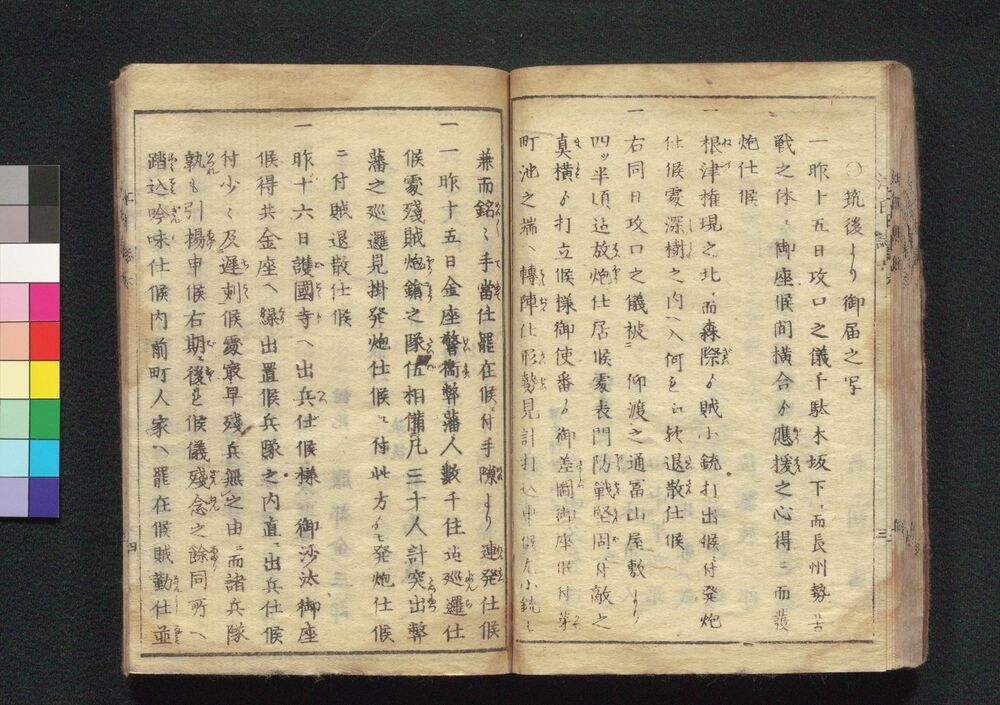 〇筑後ゟ御届之写
一昨十五日攻口之儀千駄木坂下ニ而長州勢苦
戦之体ニ御座候間横合ゟ應援之心得ニ而發
炮仕候
一根津権現之北ニ而森際ゟ賊小銃打出候ニ付発炮
仕候處深樹之内ヘ入何もに歟退散仕候
一右同日攻口之儀被 仰渡之通冨山屋敷より
四ッ半頃迠放炮仕居候處表門防戦堅固ニ付敵之
真横ゟ打立候様御使番ゟ御差圖御座候ニ付茅
町池之端ヘ轉陣仕形勢見計打込申候尤小銃ハ
兼而銘〻手當仕罷在候ニ付手隙より連発仕候
一一昨十五日金座警衛弊藩人數千住迠巡邏仕
候處殘賊炮鎗之隊伍相備凡三十人計突出弊
藩之巡邏見掛発炮仕候ニ付此方ゟも発炮仕候
ニ付賊退散仕候
一昨十六日護國寺ヘ出兵仕候様 御沙汰御座
候得共金座ヘ繰出置候兵隊之内直ニ出兵仕候
付少〻及遅刻候處最早殘兵無之由ニ而諸兵隊
孰も引揚申候右期ニ後れ候儀殘念之餘同所ヘ
踏込吟味仕候内前町人家ヘ罷在候賊勤仕並
三
四